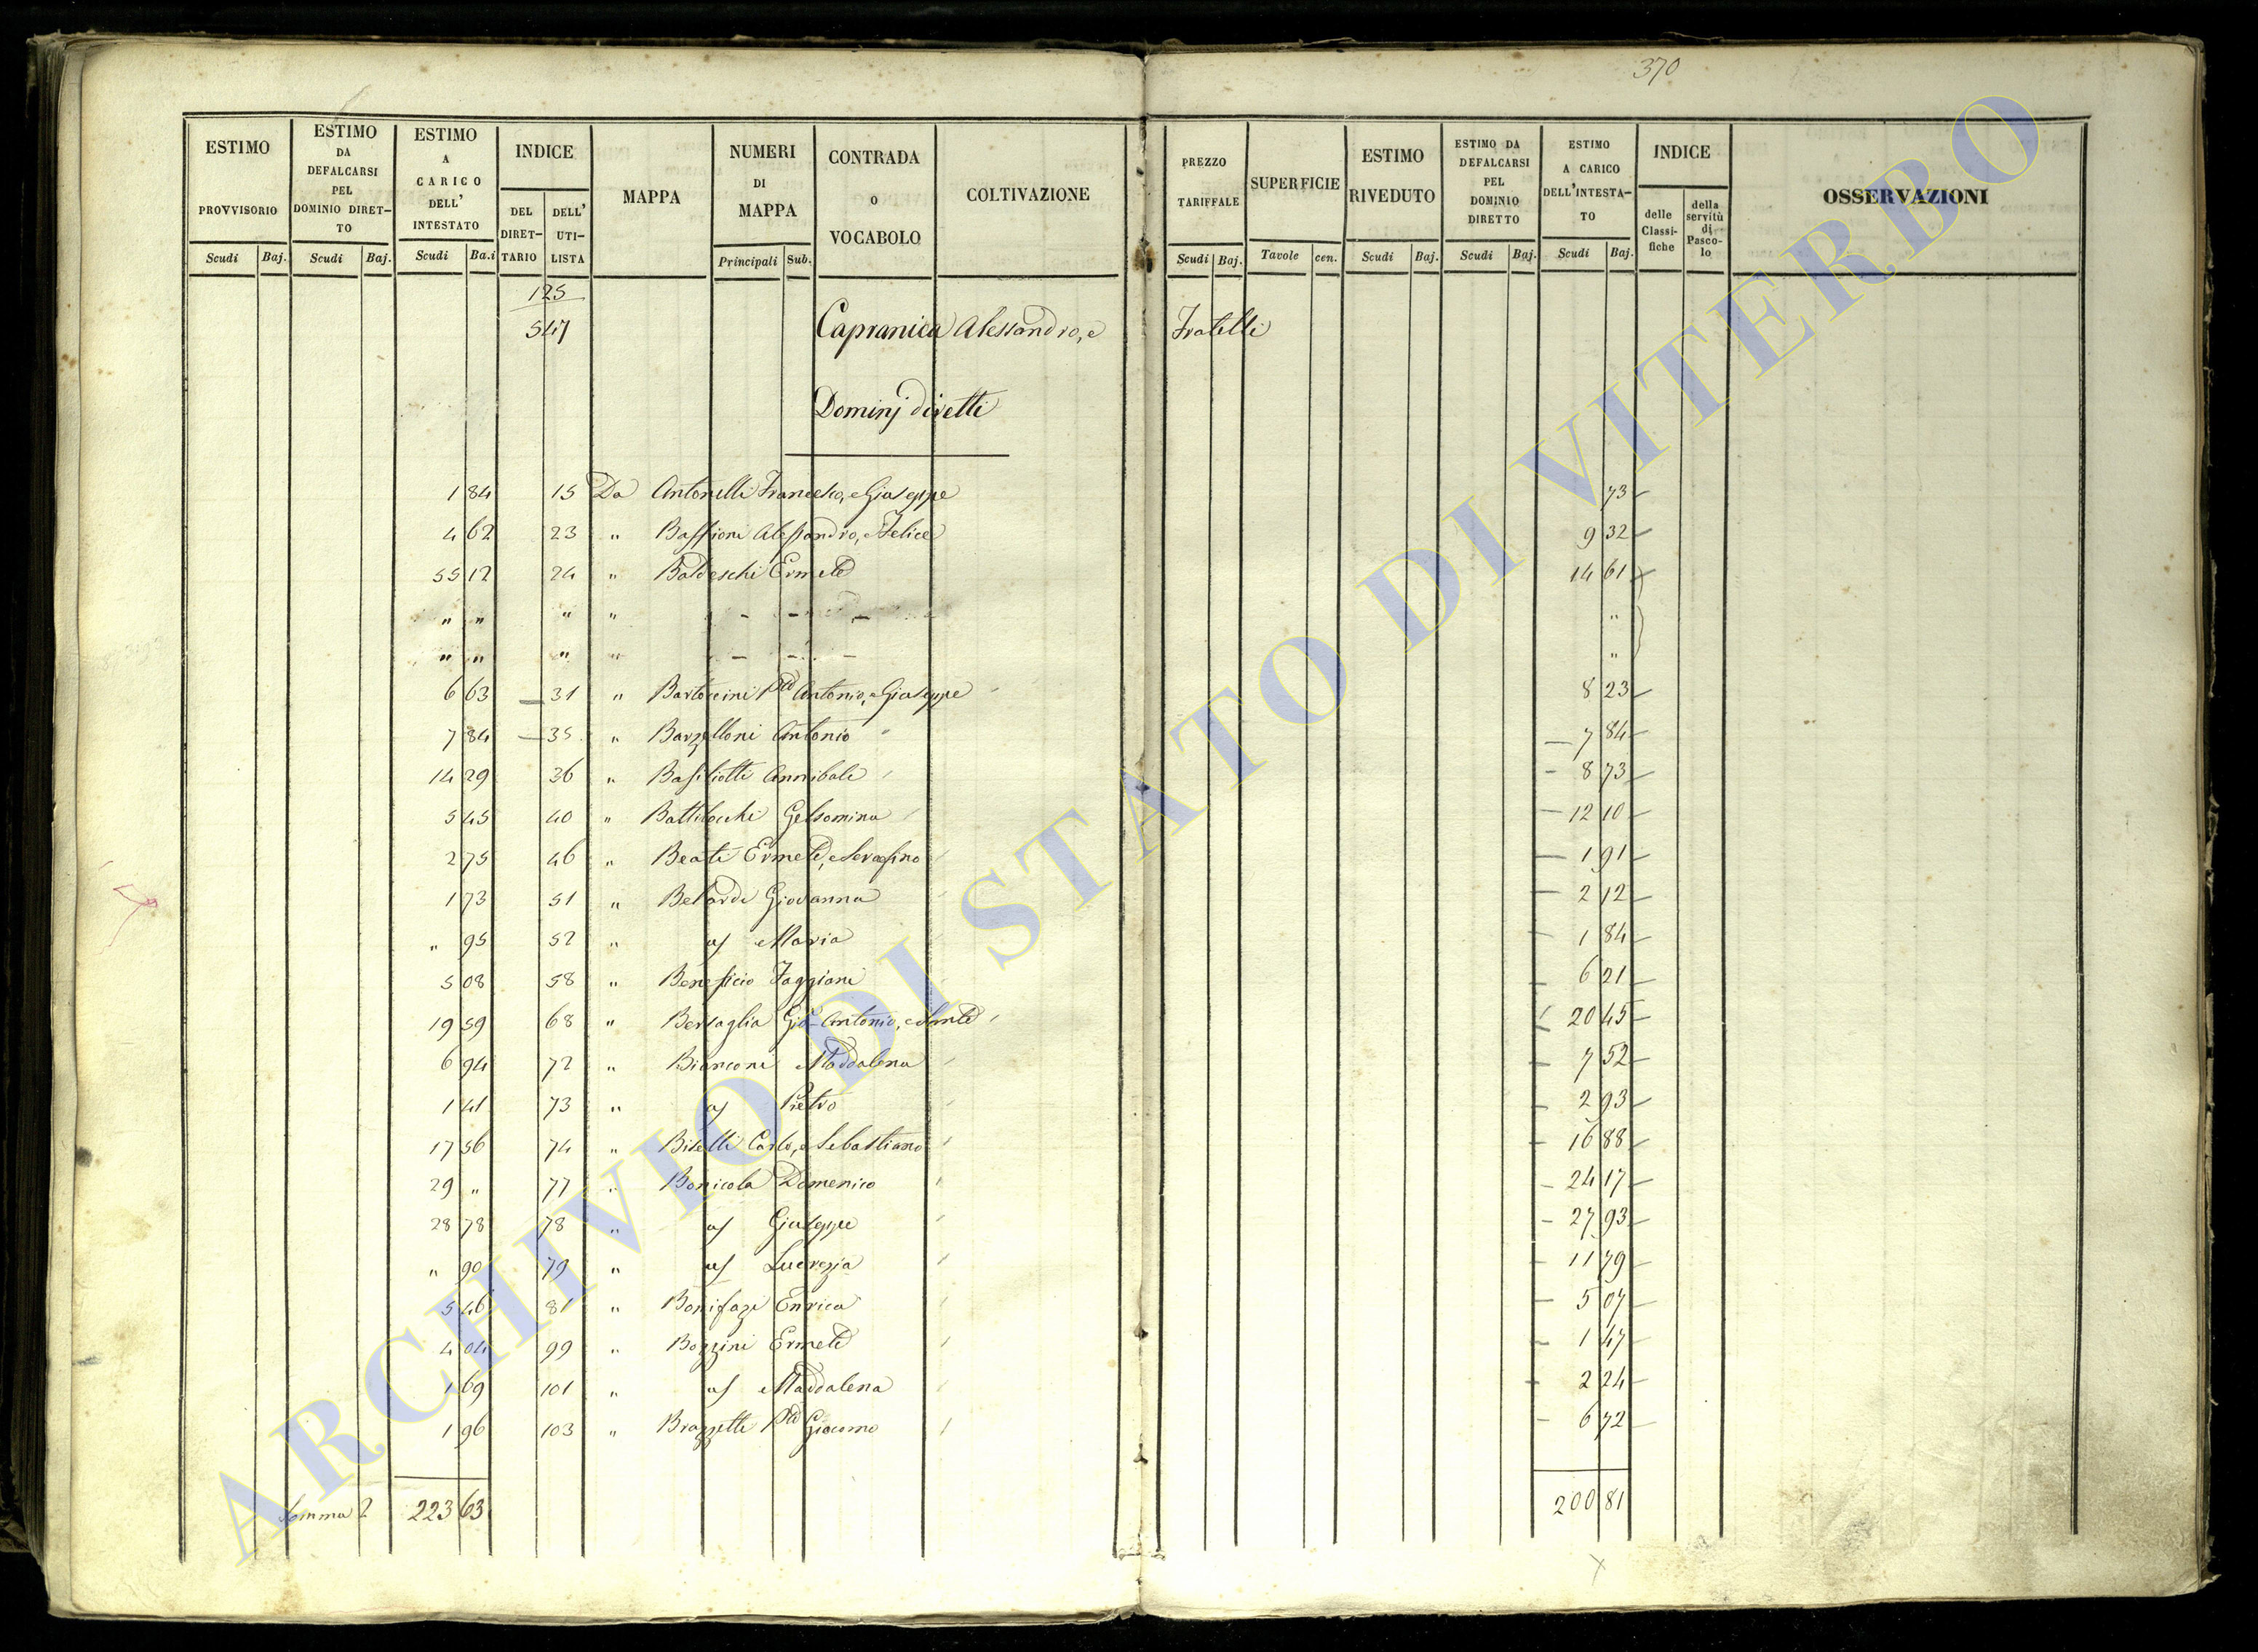 370
ESTIMO PROVVISORIO Scudi Baj.
ESTIMO DA DEFALCARSI PEL DOMINIO DIRET-TO Scudi Baj.
ESTIMO A CARICO DELL' INTESTATO Scudi Ba.i
INDICE DEL DIRET-TARIO DELL' UTI-LISTA
MAPPA
NUMERI DI MAPPA Principali Sub.
CONTRADA O VOCABOLO
COLTIVAZIONE
PREZZO TARIFFALE Scudi Baj.
SUPERFICIE Tavole cen.
ESTIMO RIVEDUTO Scudi Baj.
ESTIMO DA DEFALCARSI PEL DOMINIO DIRETTO Scudi Baj.
ESTIMO A CARICO DELL'INTESTA-TO Scudi Baj.
INDICE delle Classi-fiche della servitù di Pasco-lo
OSSERVAZIONI
125
547 Capranica Alessandro, e Fratelli
Dominj diretti
1 84 15 Da Antonelli Francesco, e Giuseppe 73
4 62 23 " Alessandro, e Felice 9 32
55 12 24 " Baldeschi Ermete 14 61
" " " " "
" " " " "
6 63 31 " Bartoccini Antonio, e Giuseppe 8 23
7 84 35 " Barzelloni Antonio 7 84
14 29 36 " Basiliotti Annibale 8 73
5 45 40 " Battilocchi Gelsomina 12 10
2 75 46 " Beati Ermete, e Serafino 1 91
1 73 51 " Belardi Giovanna 2 12
" 95 52 " Maria 1 84
5 08 58 " Beneficio Faggiani 6 21
19 59 68 " Bersaglia Gio. Antonio, e Sante 20 45
6 94 72 " Bianconi Maddalena 7 52
1 41 73 " Pietro 2 93
17 56 74 " Biselli Carlo, e Sebastiano 16 88
29 " 77 " Bonicola Domenico 24 17
28 78 78 " Giuseppe 27 93
" 90 79 " Lucrezia 11 79
5 46 81 " Bonifazi Enrica 5 07
4 04 99 " Bozzini Ermete 1 47
1 69 101 " Maddalena 2 24
1 96 103 " Brazzetti Giacomo 6 72
Somma 223 63 200 81
ARCHIVIO DI STATO DI VITERBO